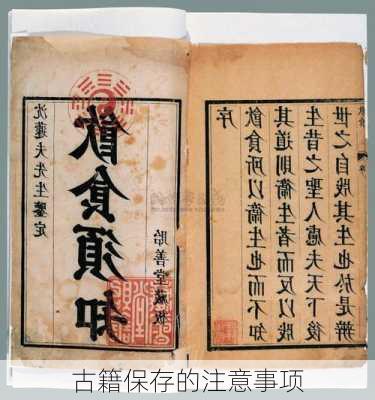 沈蓮夫先生鑒定
飲食須知
貽善堂藏板
序
飲食所以衛生也而不知
其道則衛生者而反以戕
生昔之聖人慮夫天下後
世之自戕其生也於是辨
古籍保存的注意事项